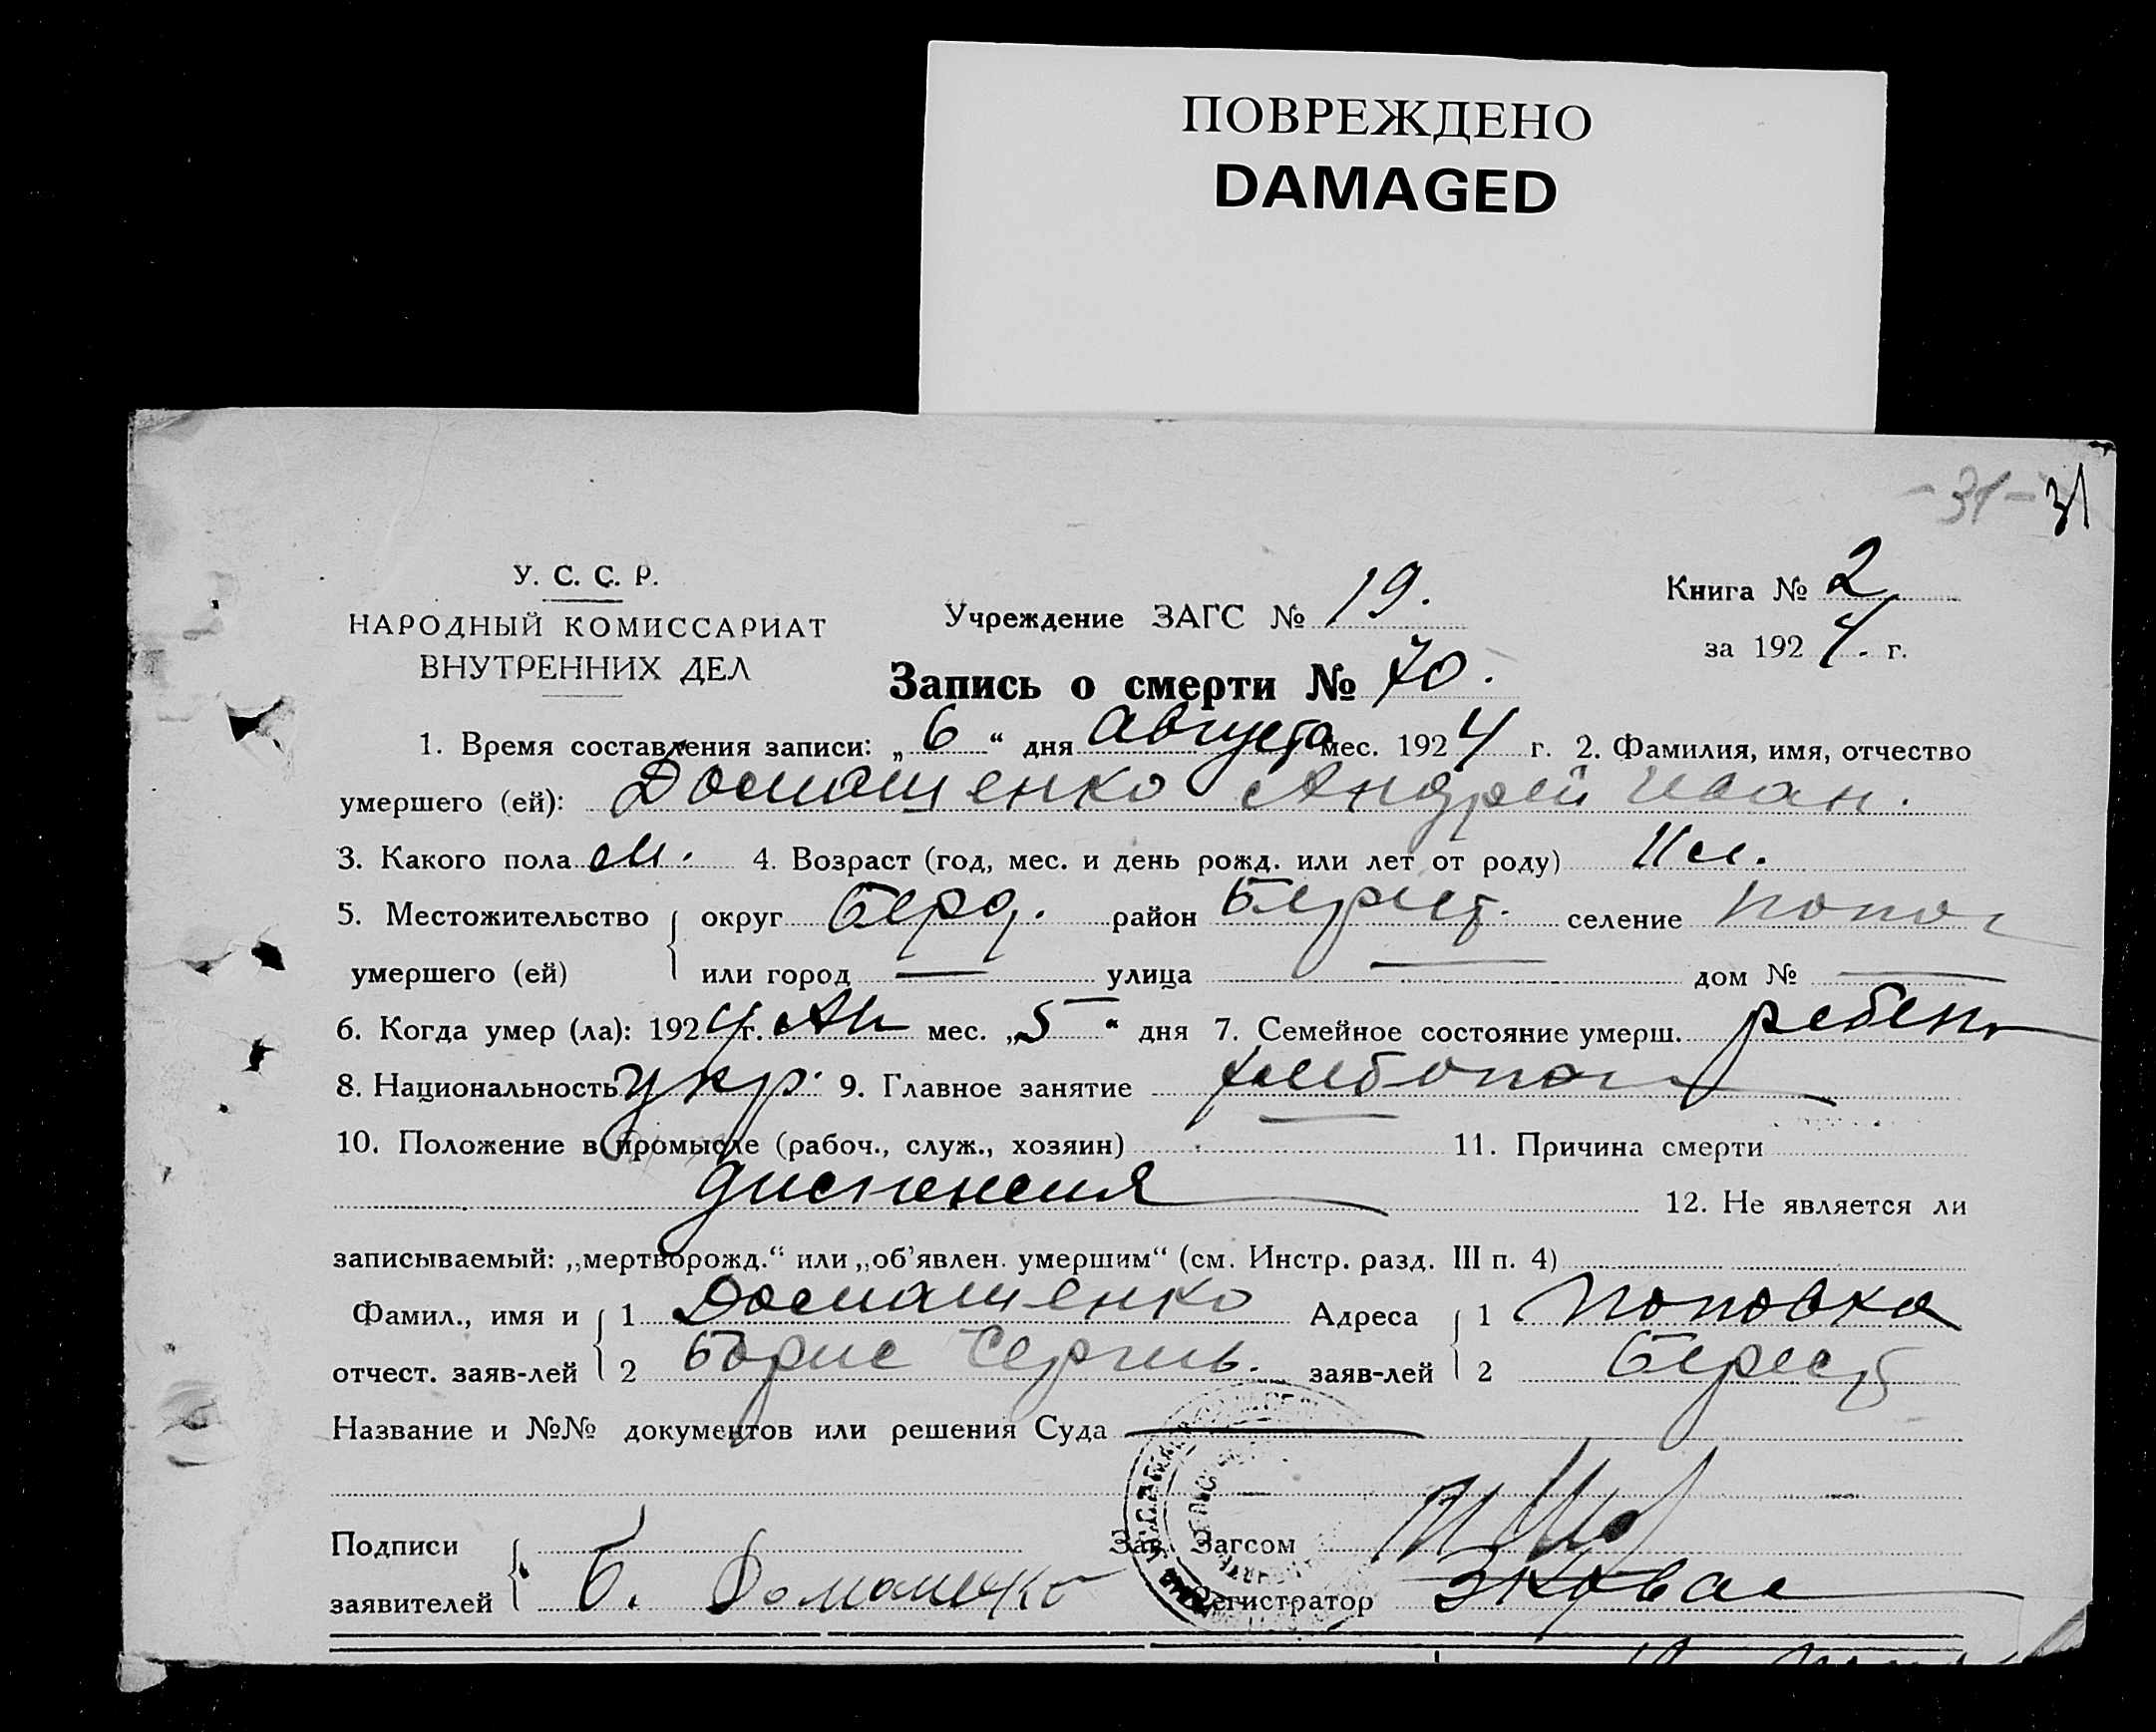 ПОВРЕЖДЕНО
DAMAGED
- 31 - 31
У. С. С. Р.
НАРОДНЫЙ КОМИССАРИАТ
ВНУТРЕННИХ ДЕЛ
Учреждение ЗАГС № 19.
Книга № 2
за 1924 г.
Запись о смерти № 70.
1. Время составления записи: „6“ дня Августа мес. 1924 г. 2. Фамилия, имя, отчество
умершего (ей): Домашенко Андрей Иван.
3. Какого пола м. 4. Возраст (год, мес. и день рожд. или лет от роду) 11 м.
5. Местожительство округ Берд. район Берест. селение Попов
умершего (ей) или город — улица — дом № —
6. Когда умер (ла): 1924 г. Ав мес. „5“ дня 7. Семейное состояние умерш. ребенк
8. Национальность укр. 9. Главное занятие хлебопаш
10. Положение в промысле (рабоч., служ., хозяин) 11. Причина смерти
диспенсия
12. Не является ли
записываемый: „мертворожд.“ или „об'явлен. умершим“ (см. Инстр. разд. III п. 4)
Фамил., имя и 1 Домашенко Адреса 1 Поповка
отчест. заяв-лей 2 Борис Сергеев. заяв-лей 2 Берест
Название и №№ документов или решения Суда —
Подписи Зав. Загсом
заявителей Б. Домашенко Регистратор